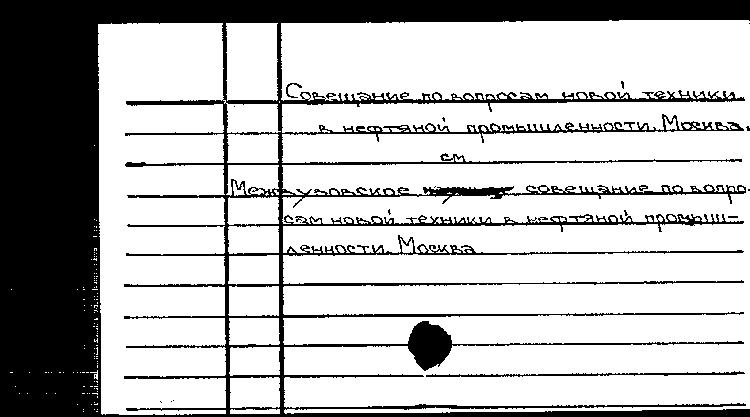 Совещание по вопросам новой техники
в нефтяной промышленности. Москва.
см.
Межвузовское совещание по вопро-
сам новой техники в нефтяной промыш-
ленности. Москва